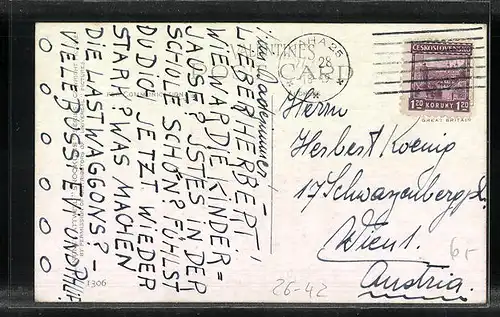 LIEBER HERBERT!
WIE WAR DIE KINDER=
JAUSE? IST ES IN DER
SCHULE SCHÖN? FÜHLST
DU DICH JETZT WIEDER
STARK? WAS MACHEN
DIE LASTWAGGONS? –
VIELE BUSSI EVI UND
VALENTINES
POST CARD
PRAHA 25
28
ČESKOSLOVENSKO
1.20 KORUNY 1.20
GREAT BRITAIN
Herrn
Herbert Koenig
17 Schwarzenbergpl.
Wien 1.
Austria.
6,-
26-42
1306